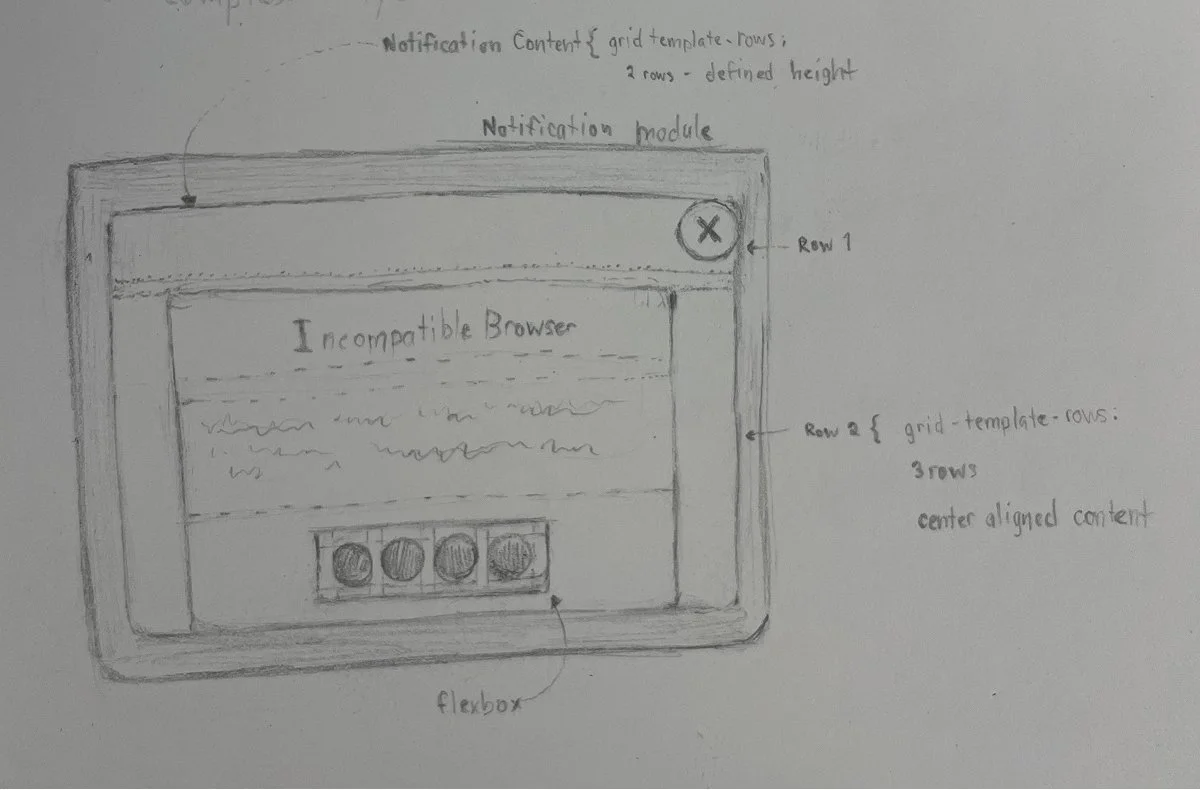 Notification Content { grid template-rows:
2 rows - defined height
Notification module
X
Row 1
Incompatible Browser
Row 2 { grid-template-rows:
3 rows
center aligned content
flexbox